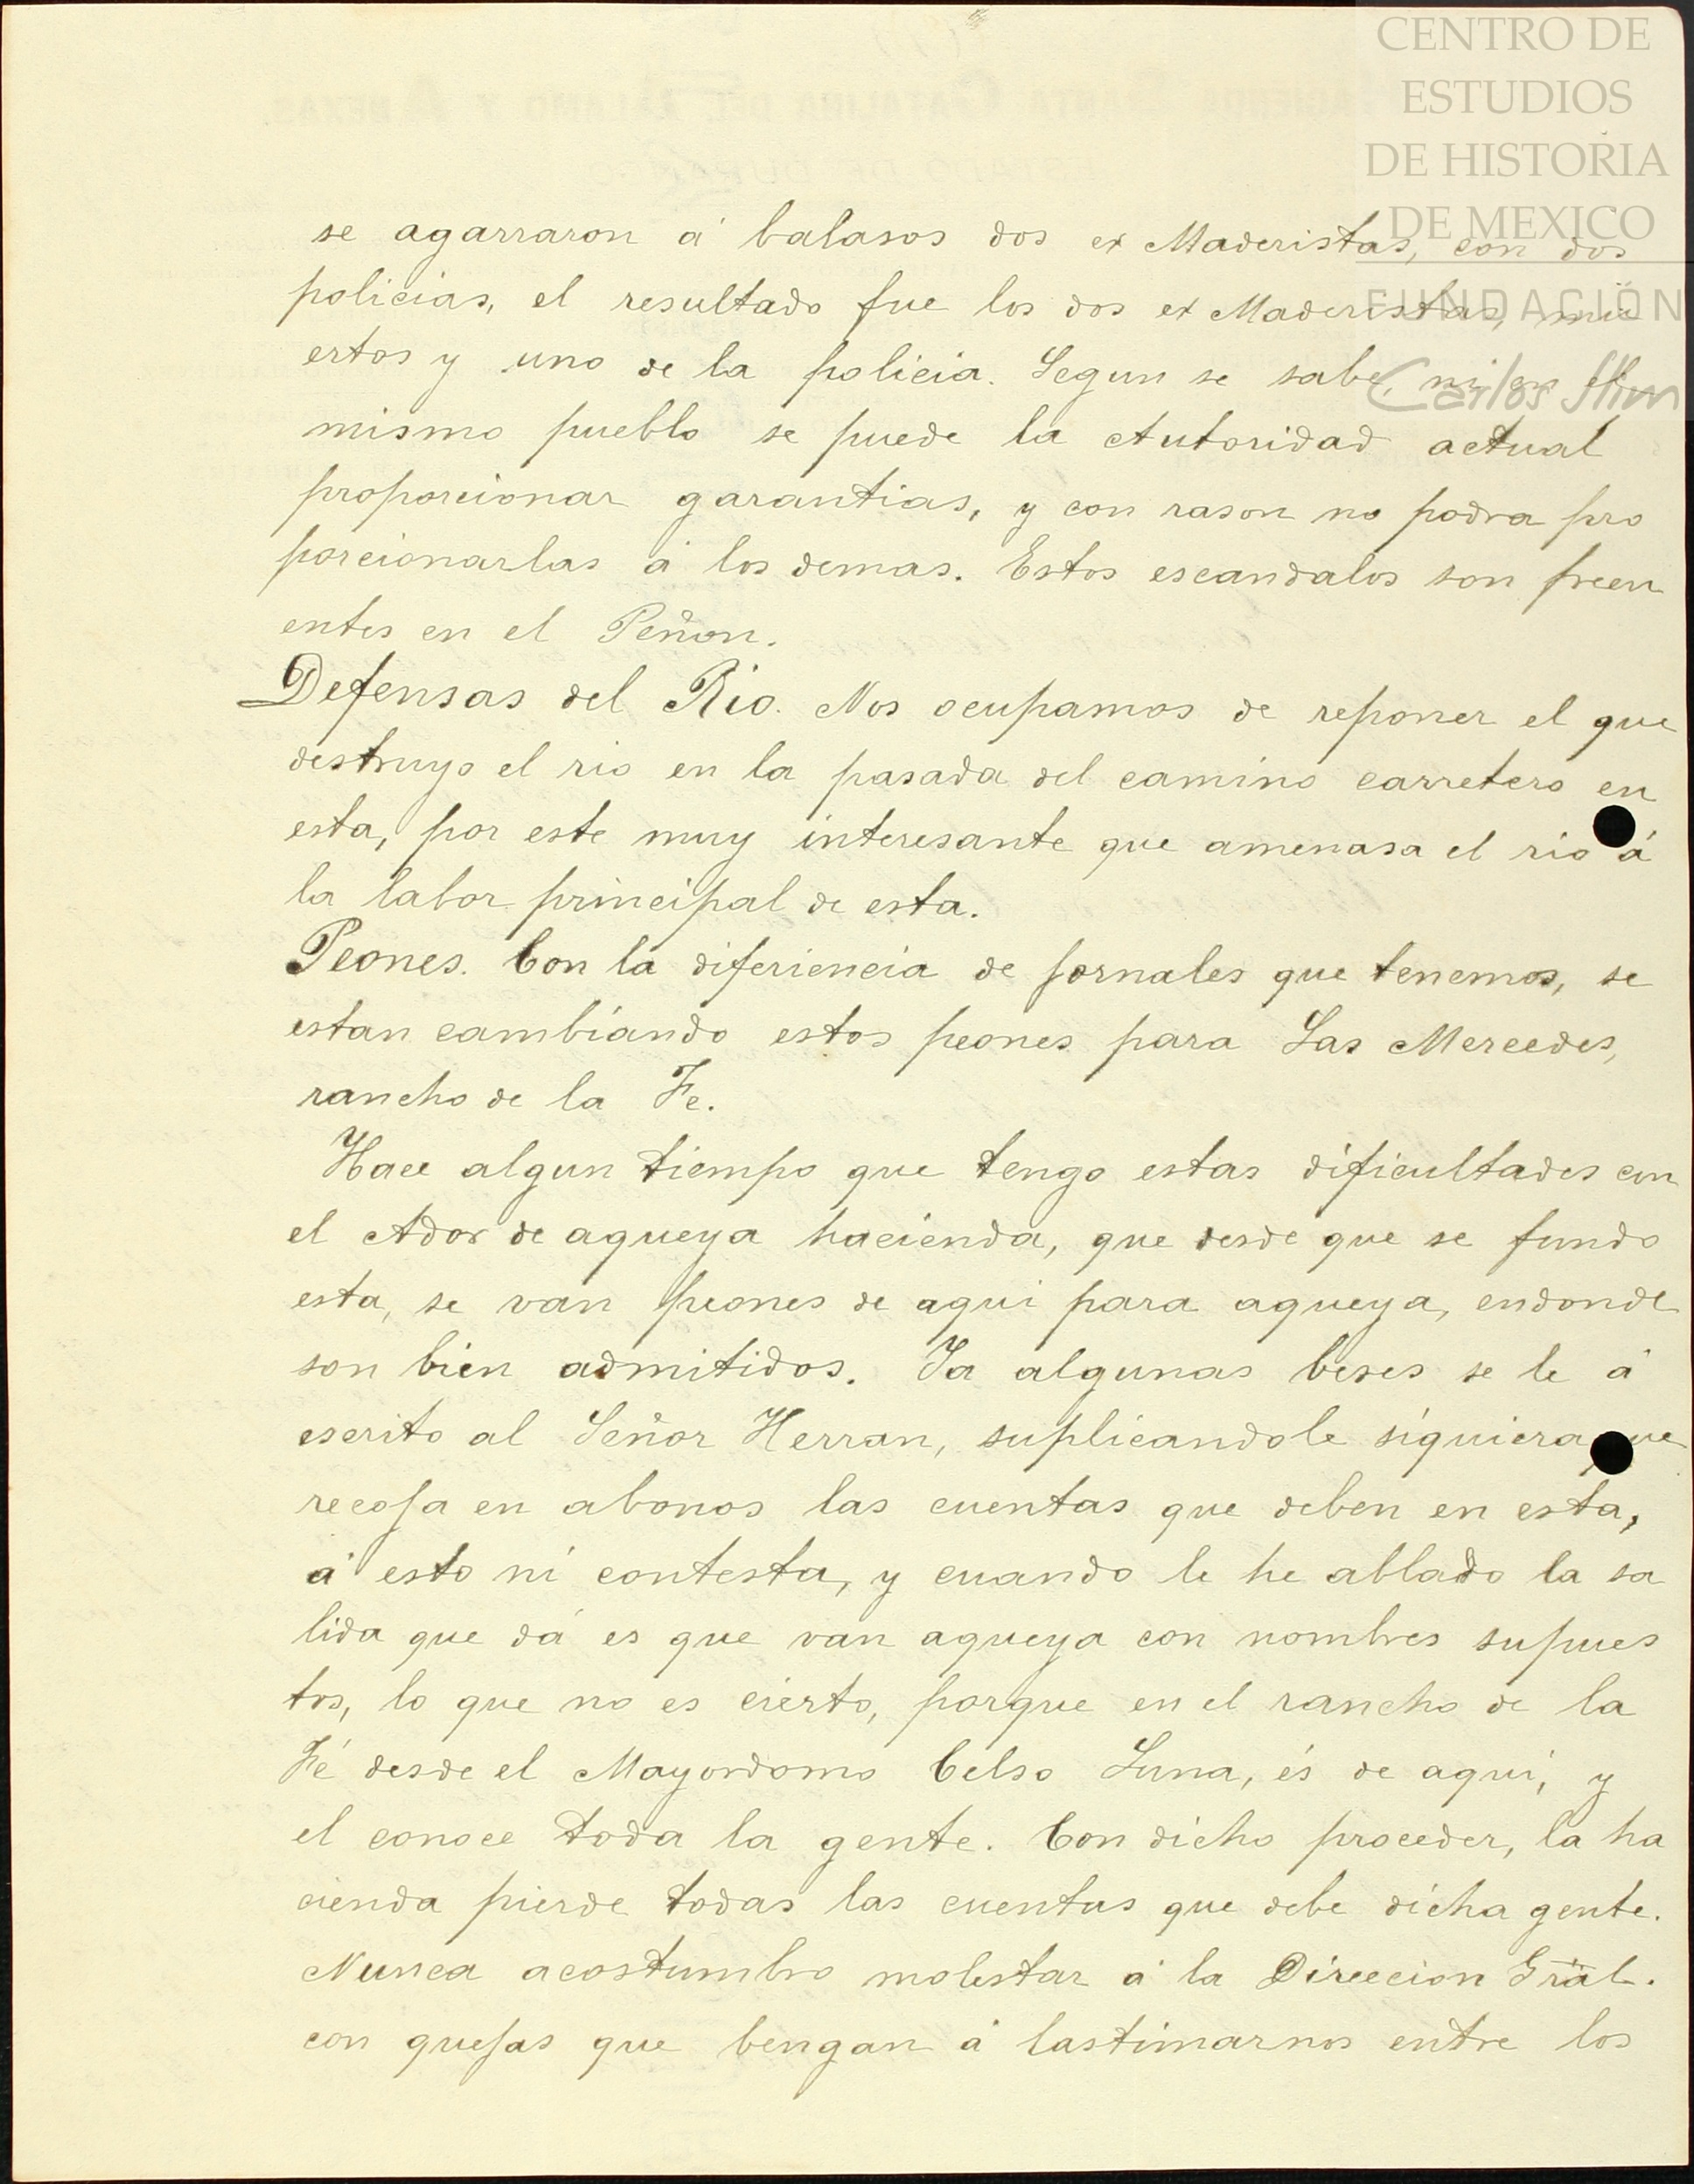 CENTRO DE
ESTUDIOS
DE HISTORIA
DE MEXICO
FUNDACIÓN
Carlos Slim
se agarraron á balasos dos ex Maderistas, con dos
policias, el resultado fue los dos ex Maderistas, mu
ertos y uno de la policia. Segun se sabe, ni en el
mismo pueblo se puede la Autoridad actual
proporcionar garantias, y con rason no podra pro
porcionarlas á los demas. Estos escandalos son frecu
entes en el Peñon.
Defensas del Rio. Nos ocupamos de reponer el que
destruyo el rio en la pasada del camino carretero en
esta, por este muy interesante que amenasa el rio á
la labor principal de esta.
Peones. Con la diferiencia de jornales que tenemos, se
estan cambiando estos peones para Las Mercedes,
rancho de la Fe.
Hace algun tiempo que tengo estas dificultades con
el Ador de aqueya hacienda, que desde que se fundo
esta, se van peones de aqui para aqueya, endonde
son bien admitidos. Ya algunas beses se le á
escrito al Señor Herran, suplicandole siquiera que
recoja en abonos las cuentas que deben en esta,
á esto ni contesta, y cuando le he ablado la sa
lida que dá es que van aqueya con nombres supues
tos, lo que no es cierto, porque en el rancho de la
Fé desde el Mayordomo Celso Luna, és de aqui, y
el conoce toda la gente. Con dicho proceder, la ha
cienda pierde todas las cuentas que debe dicha gente.
Nunca acostumbro molestar á la Direccion Gral.
con quejas que bengan á lastimarnos entre los